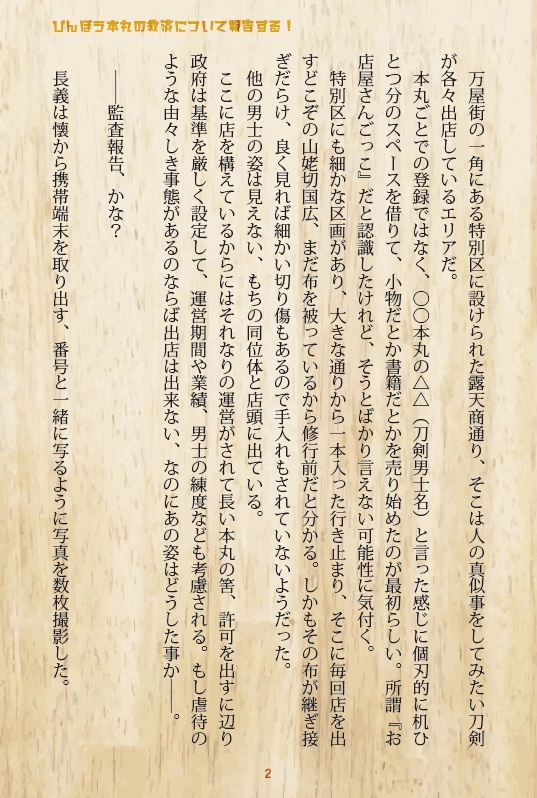 びんぼう本丸の救済について報告する！
万屋街の一角にある特別区に設けられた露天商通り、そこは人の真似事をしてみたい刀剣
が各々出店しているエリアだ。
本丸ごとでの登録ではなく、〇〇本丸の△△（刀剣男士名）と言った感じに個刃的に机ひ
とつ分のスペースを借りて、小物だとか書籍だとかを売り始めたのが最初らしい。所謂『お
店屋さんごっこ』だと認識したけれど、そうとばかり言えない可能性に気付く。
特別区にも細かな区画があり、大きな通りから一本入った行き止まり、そこに毎回店を出
すどこぞの山姥切国広、まだ布を被っているから修行前だと分かる。しかもその布が継ぎ接
ぎだらけ、良く見れば細かい切り傷もあるので手入れもされていないようだった。
他の男士の姿は見えない、もちの同位体と店頭に出ている。
ここに店を構えているからにはそれなりの運営がされて長い本丸の筈、許可を出すに辺り
政府は基準を厳しく設定して、運営期間や業績、男士の練度なども考慮される。もし虐待の
ような由々しき事態があるのならば出店は出来ない、なのにあの姿はどうした事か――。
――監査報告、かな？
長義は懐から携帯端末を取り出す、番号と一緒に写るように写真を数枚撮影した。
2